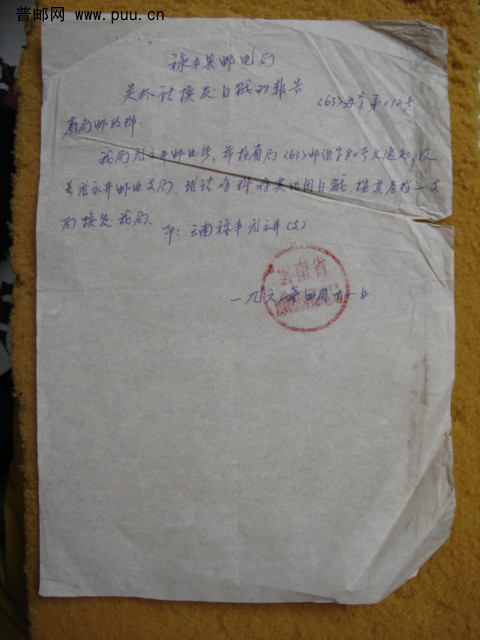 普邮网 www.puu.cn
禄丰县邮电局
关于请换发日戳的报告
(63)办字第012号
省局邮政科:
我局元永井邮电所,并接省局(63)邮组字80号文通知,改
为元永井邮电支局,现请省科将其旧用日戳,换其名称一支
局换发我局。
即:云南禄丰元永井(支)
云南省
一九六三年四月廿一日